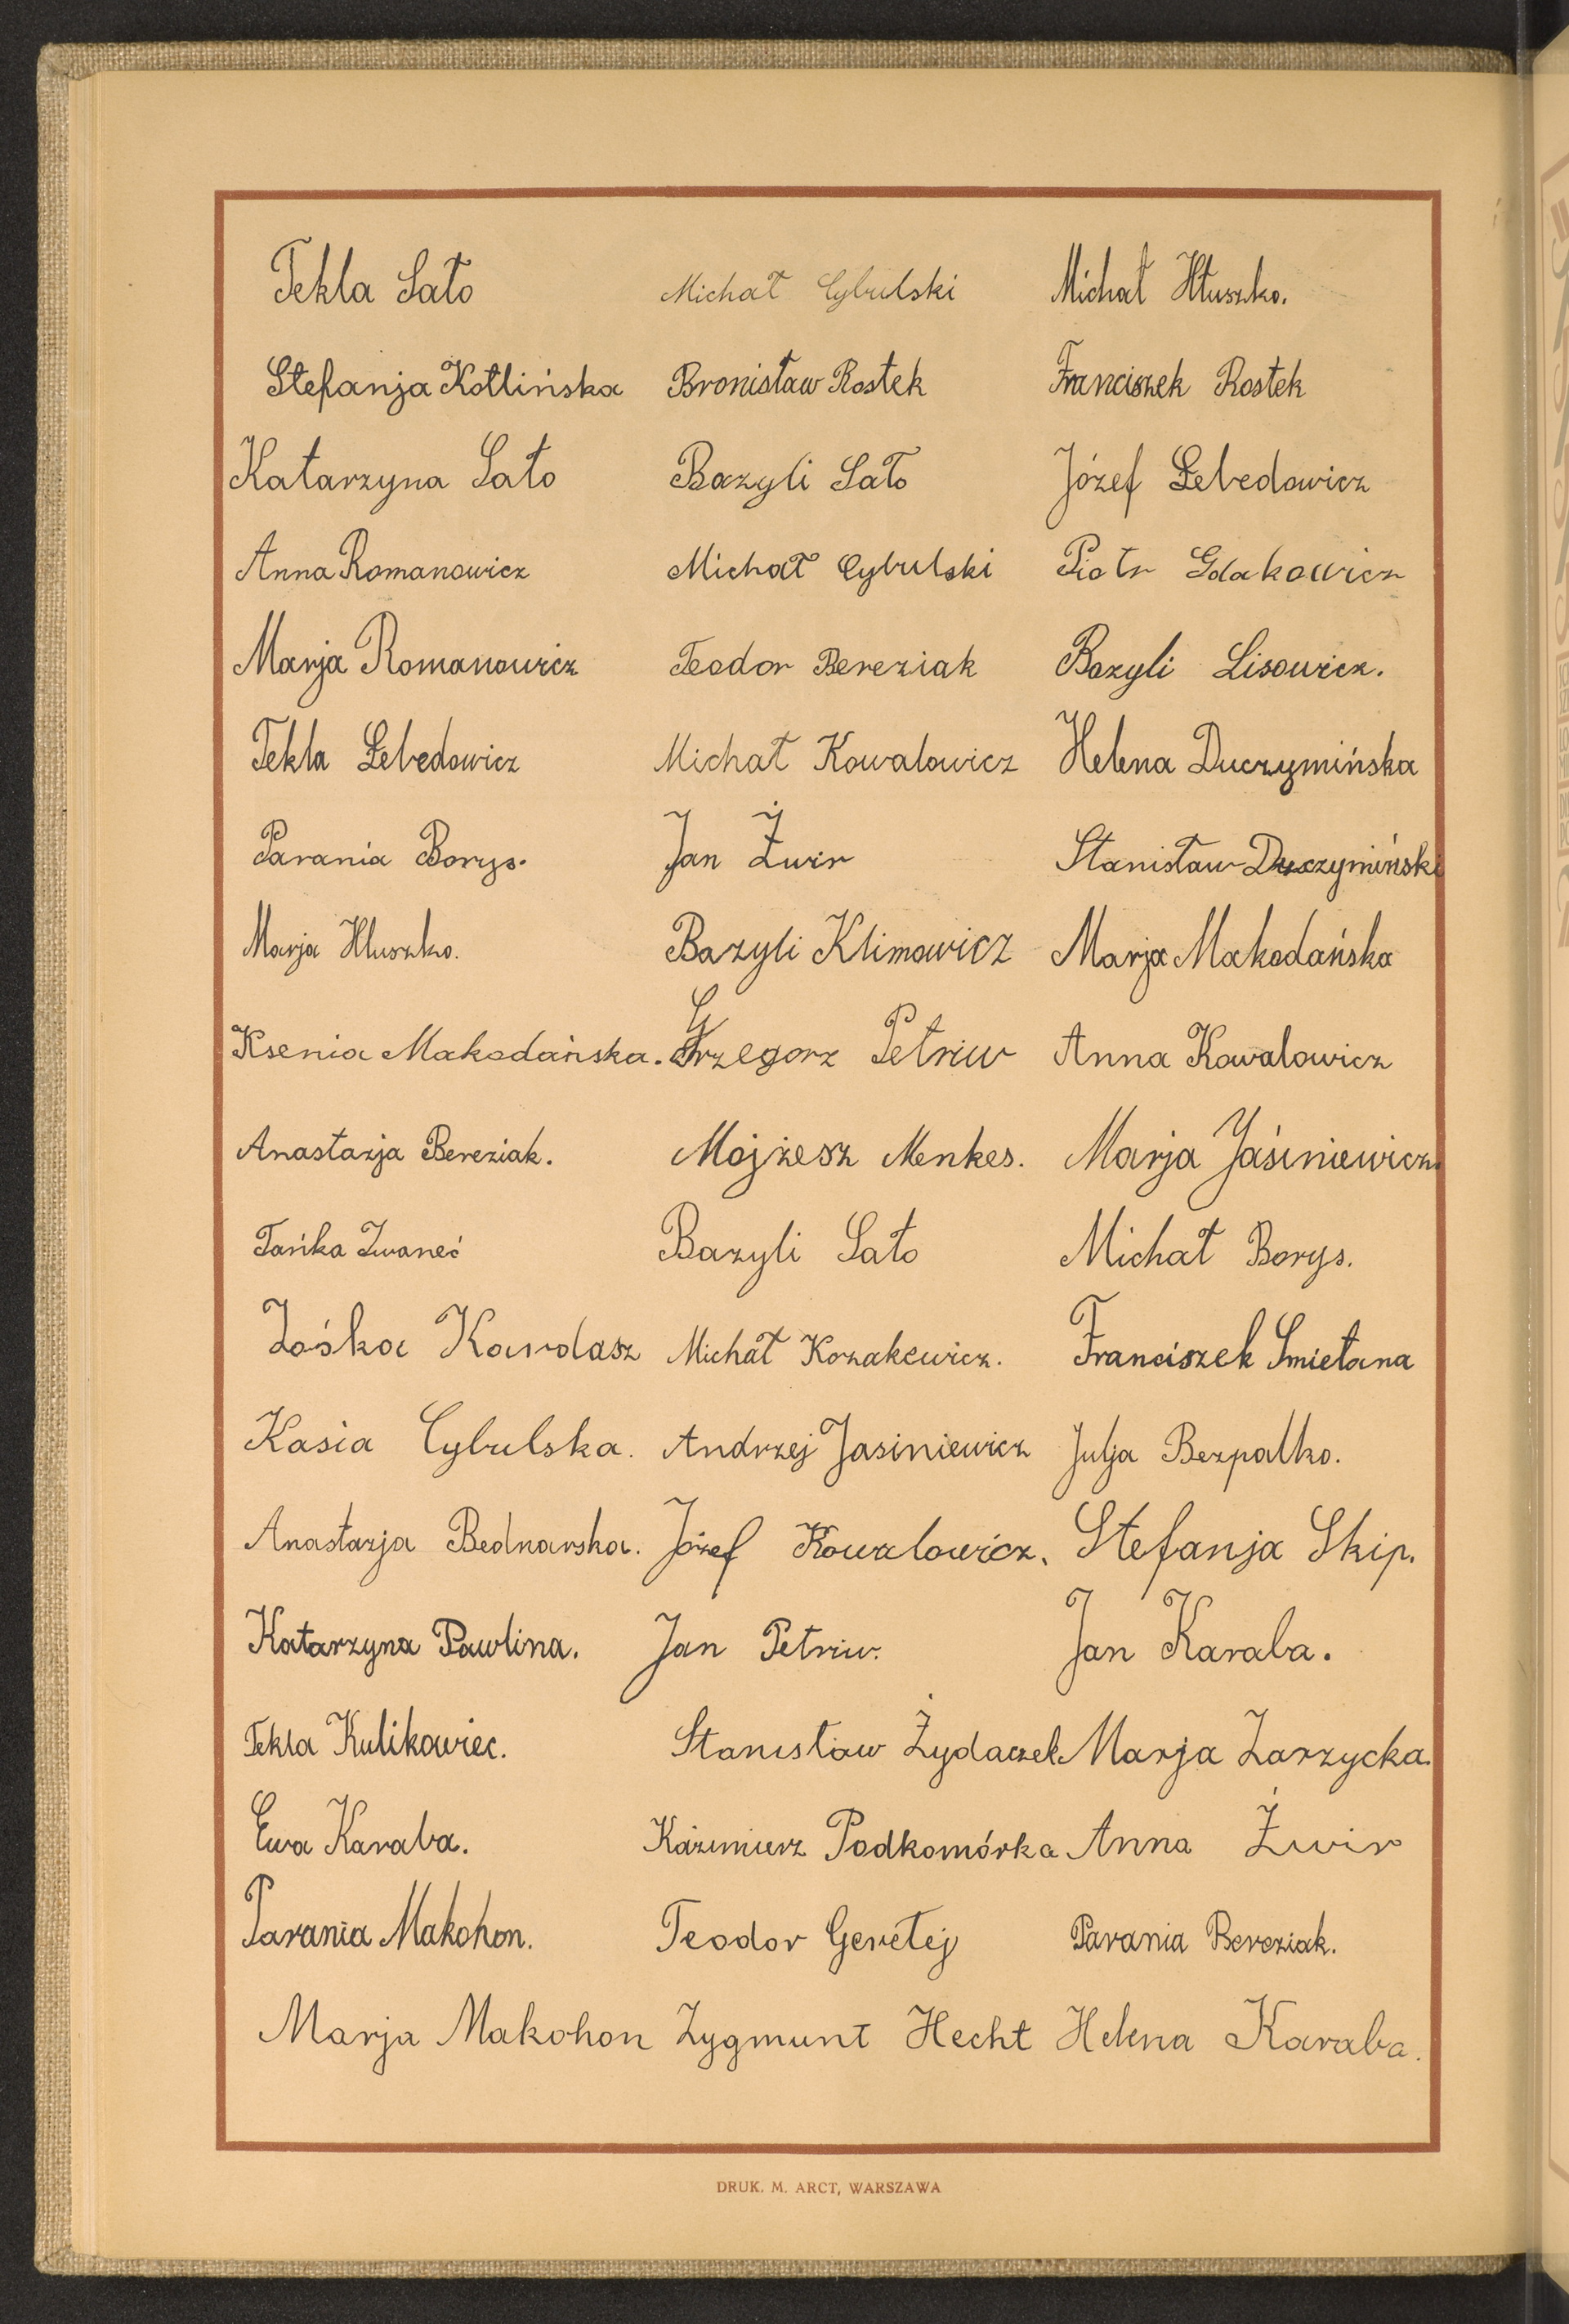 Tekla Sato Michał Cybulski Michał Hłuszko.
Stefanja Kotlińska Bronisław Rostek Franciszek Rostek
Katarzyna Sato Bazyli Sato Józef Łebedowicz
Anna Romanowicz Michał Cybulski Piotr Gdakowicz
Marja Romanowicz Teodor Bereziak Bazyli Lisowicz.
Tekla Łebedowicz Michał Kowalowicz Helena Duczymińska
Parania Borys. Jan Żwir Stanisław Duczymiński
Marja Hluszko. Bazyli Klimowicz Marja Makodańska
Ksenia Makodańska. Grzegorz Petriw Anna Kowalowicz
Anastazja Bereziak. Mojżesz Menkes. Marja Jaśiniewicz.
Tańka Iwaneć Bazyli Sato Michał Borys.
Zośka Kardasz Michał Kozakewicz. Franciszek Smietana
Kasia Cybulska. Andrzej Jasiniewicz Julja Bezpalko.
Anastazja Bednarska. Józef Kowalowicz. Stefanja Skip.
Katarzyna Pawlina. Jan Petriw. Jan Karaba.
Tekla Kulikowiec. Stanisław Żydaczek Marja Zarzycka.
Ewa Karaba. Kazimierz Podkomórka Anna Żwir
Parania Makohon. Teodor Geretej Parania Bereziak.
Marja Makohon Zygmunt Hecht Helena Karaba.
DRUK. M. ARCT, WARSZAWA